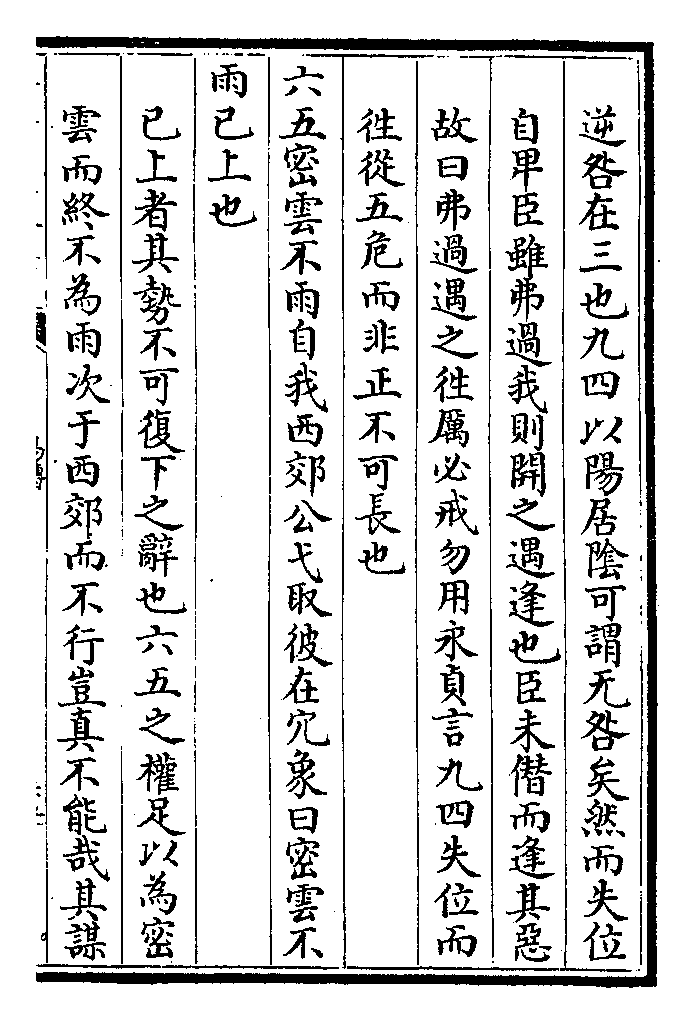 逆咎在三也九四以陽居陰可謂无咎矣然而失位
自卑臣雖弗過我則開之遇逢也臣未僭而逢其惡
故曰弗過遇之徃厲必戒勿用永貞言九四失位而
徃從五危而非正不可長也
六五密雲不雨自我西郊公弋取彼在穴象曰密雲不
雨已上也
已上者其勢不可復下之辭也六五之權足以為密
雲而終不為雨次于西郊而不行豈真不能哉其謀